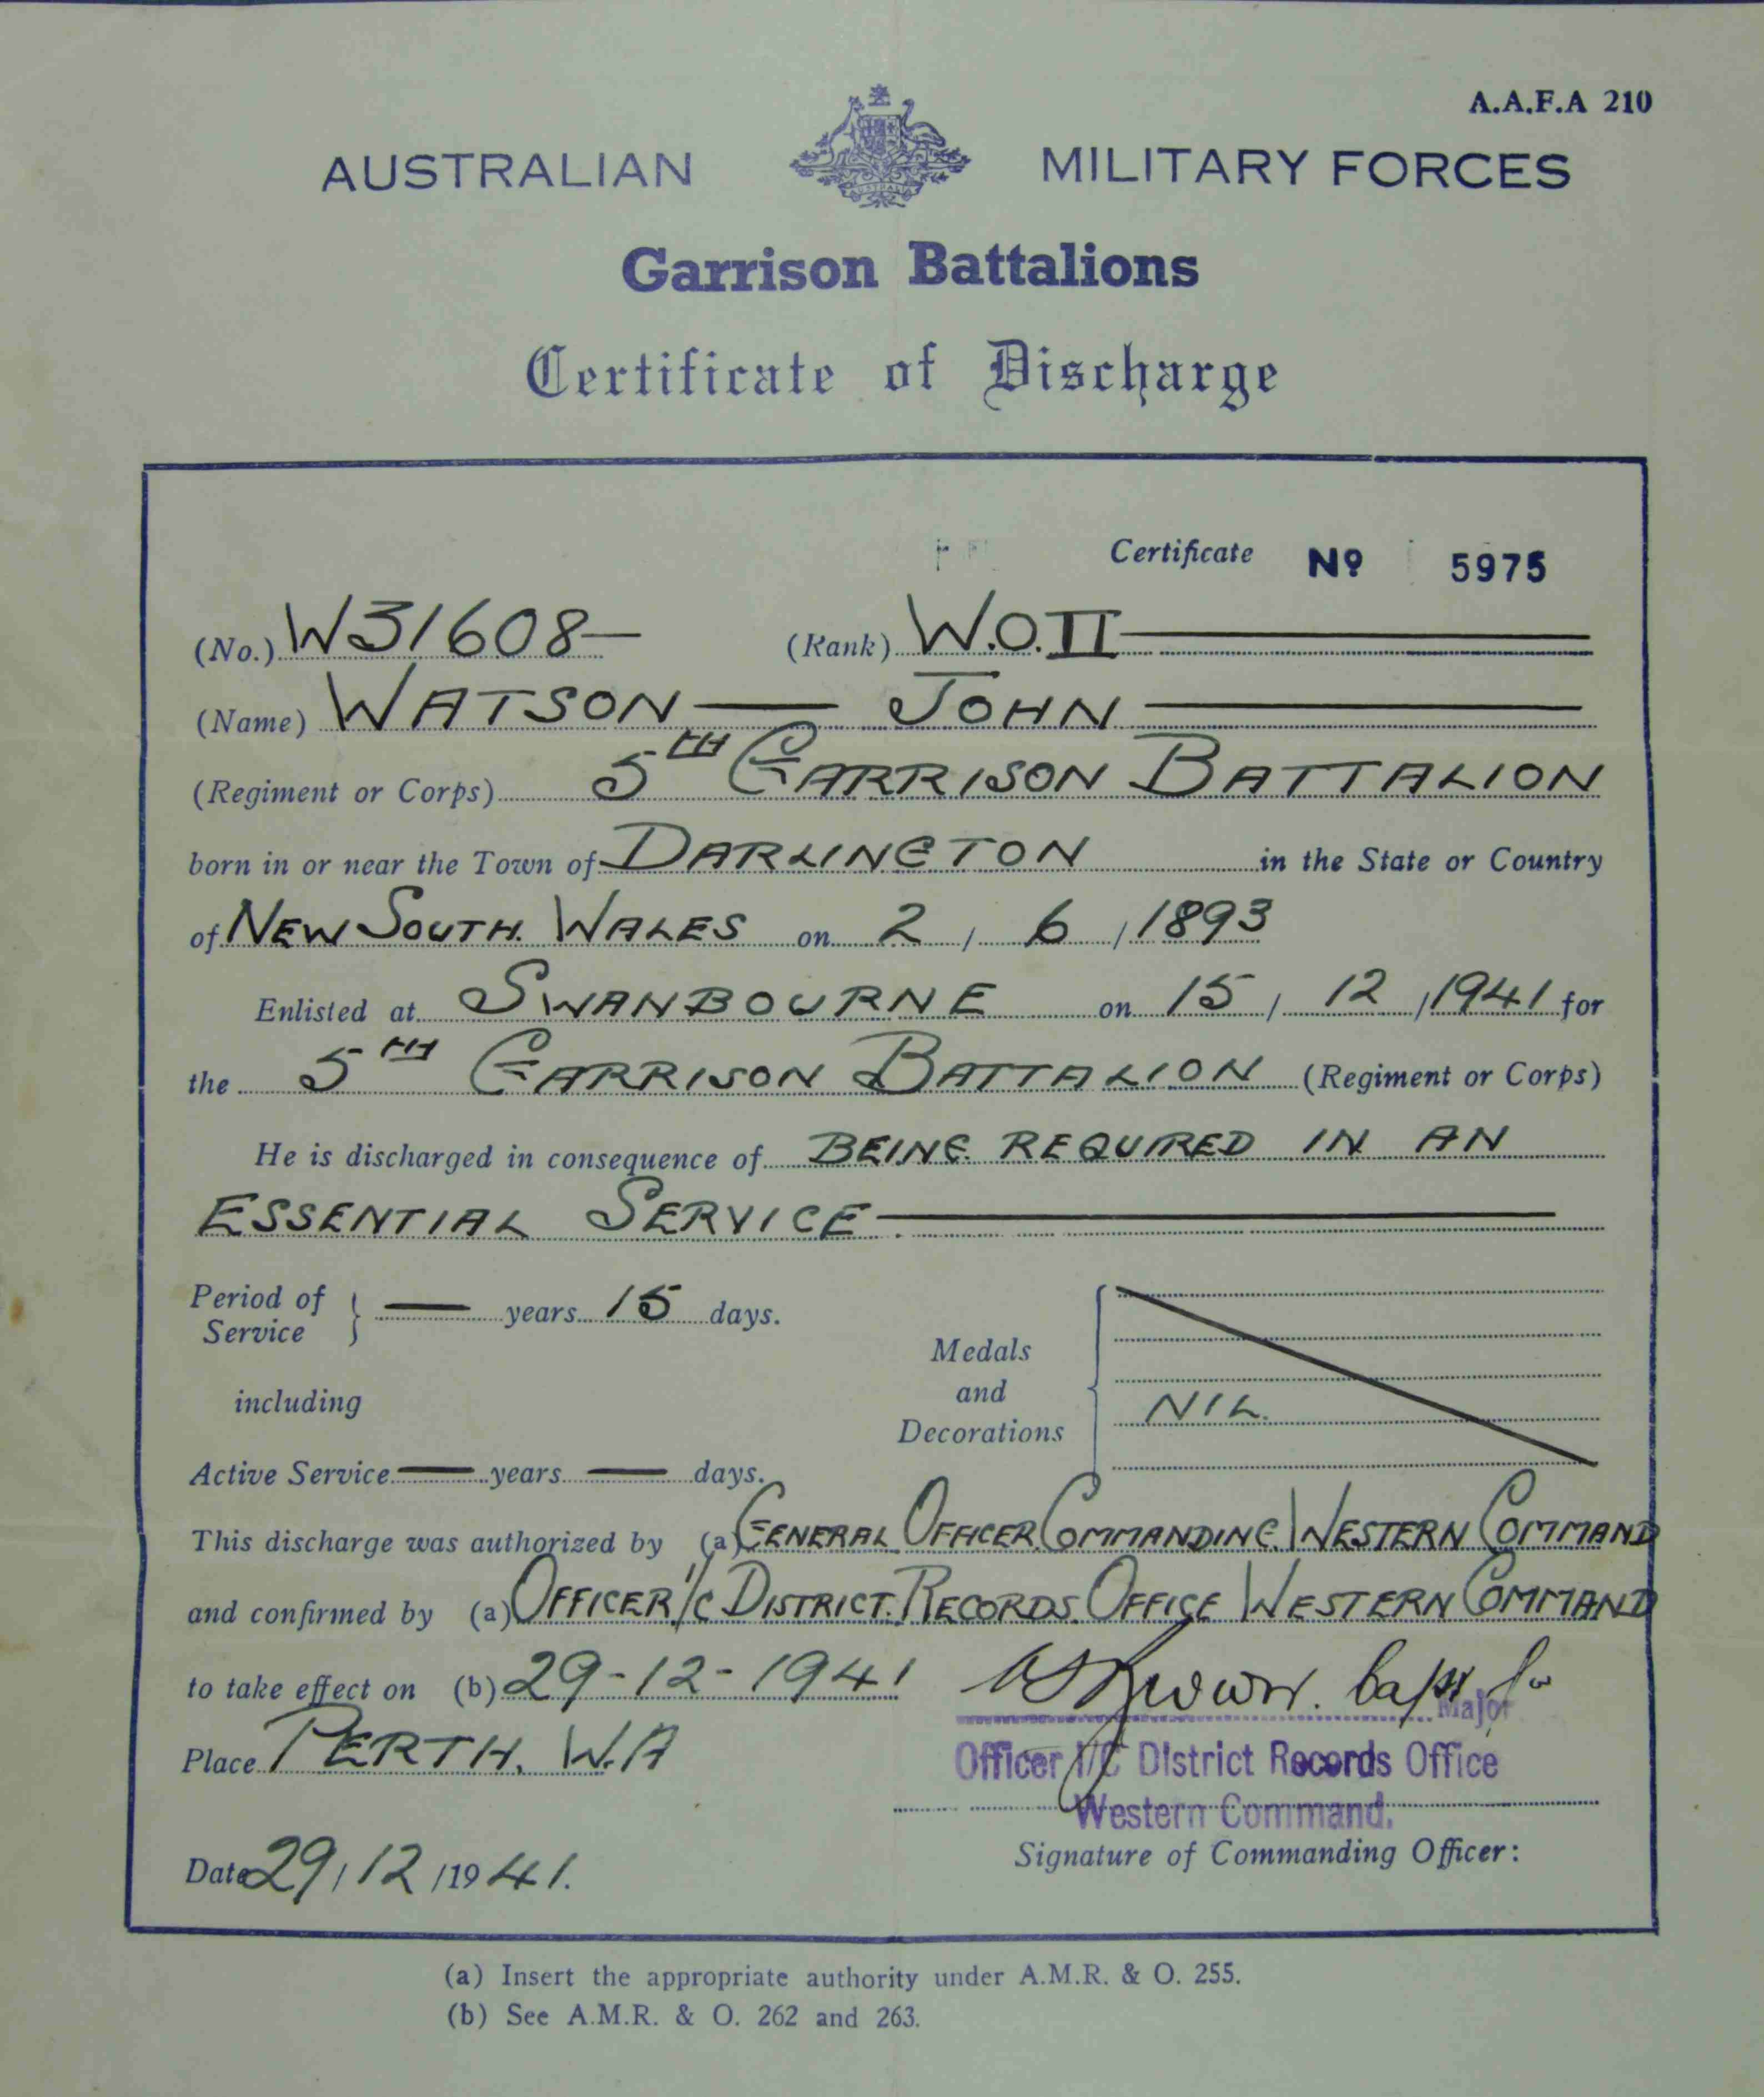 A.A.F.A 210
AUSTRALIAN MILITARY FORCES
AUSTRALIA
Garrison Battalions
Certificate of Discharge
Certificate No 5975
(No.) W31608— (Rank) W.O.II
(Name) WATSON — JOHN
(Regiment or Corps) 5TH GARRISON BATTALION
born in or near the Town of DARLINGTON in the State or Country
of NEW SOUTH WALES on 2 / 6 / 1893
Enlisted at SWANBOURNE on 15 / 12 / 1941 for
the 5TH GARRISON BATTALION (Regiment or Corps)
He is discharged in consequence of BEING REQUIRED IN AN
ESSENTIAL SERVICE
Period of Service } — years 15 days.
including
Medals and Decorations { NIL.
Active Service — years — days.
This discharge was authorized by (a) GENERAL OFFICER COMMANDING WESTERN COMMAND
and confirmed by (a) OFFICER I/C DISTRICT RECORDS OFFICE WESTERN COMMAND
to take effect on (b) 29-12-1941 Capt for Major
Place PERTH. W.A Officer I/C District Records Office
Western Command.
Date 29/12/1941. Signature of Commanding Officer:
(a) Insert the appropriate authority under A.M.R. & O. 255.
(b) See A.M.R. & O. 262 and 263.